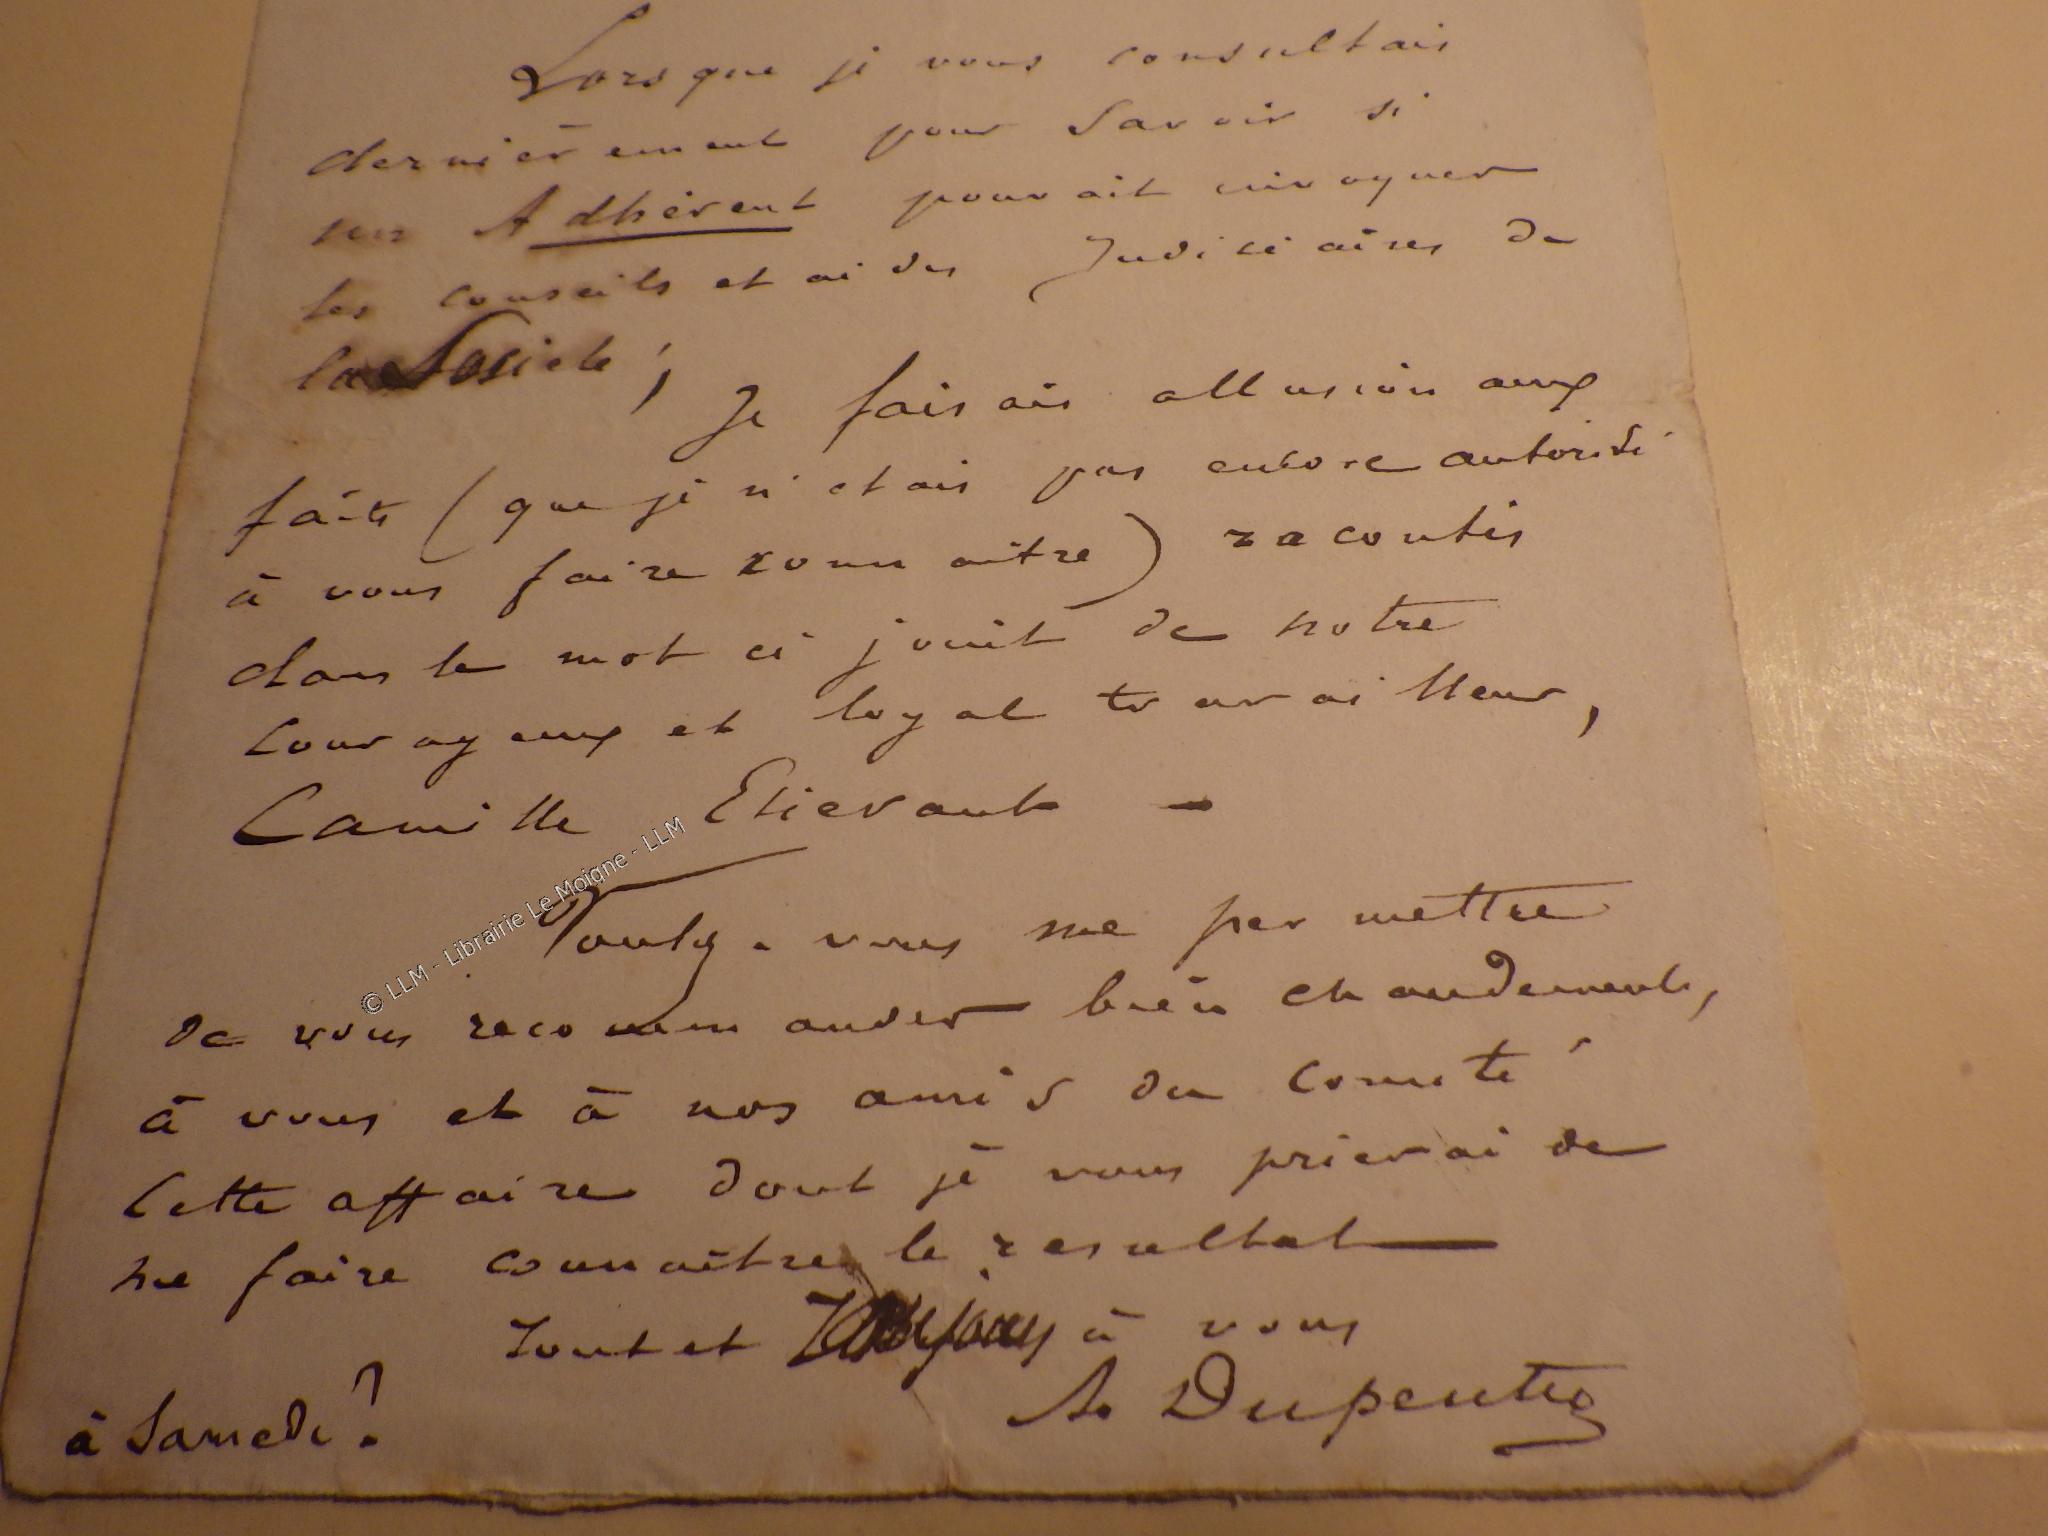 Lorsque je vous consultais
dernièrement pour savoir si
un Adhérent pouvait invoquer
les conseils et aides Judiciaires de
la Société ;
Je faisais allusion aux
faits (que je n'etais pas encore autorisé
à vous faire connaitre) racontés
dans le mot ci joint de notre
courageux et loyal travailleur,
Camille Etievant -
Voulez-vous me permettre
de vous recommander bien chaudement,
à vous et à nos amis du comité
cette affaire dont je vous prierai de
me faire connaître le resultat
Tout et Toujours à vous
A. Dupeuty
à Samedi ?
© LLM - Librairie Le Moigne - LLM